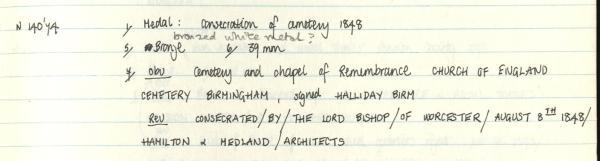 N 140'74 1, Medal: Consecration of cemetery 1848
bronzed white metal?
5, Bronze 6, 39 mm
7, Obv Cemetery and chapel of Remembrance CHURCH OF ENGLAND
CEMETERY BIRMINGHAM, signed HALLIDAY BIRM
Rev CONSECRATED/BY/THE LORD BISHOP/OF WORCESTER/AUGUST 8TH 1848/
HAMILTON & MEDLAND/ARCHITECTS